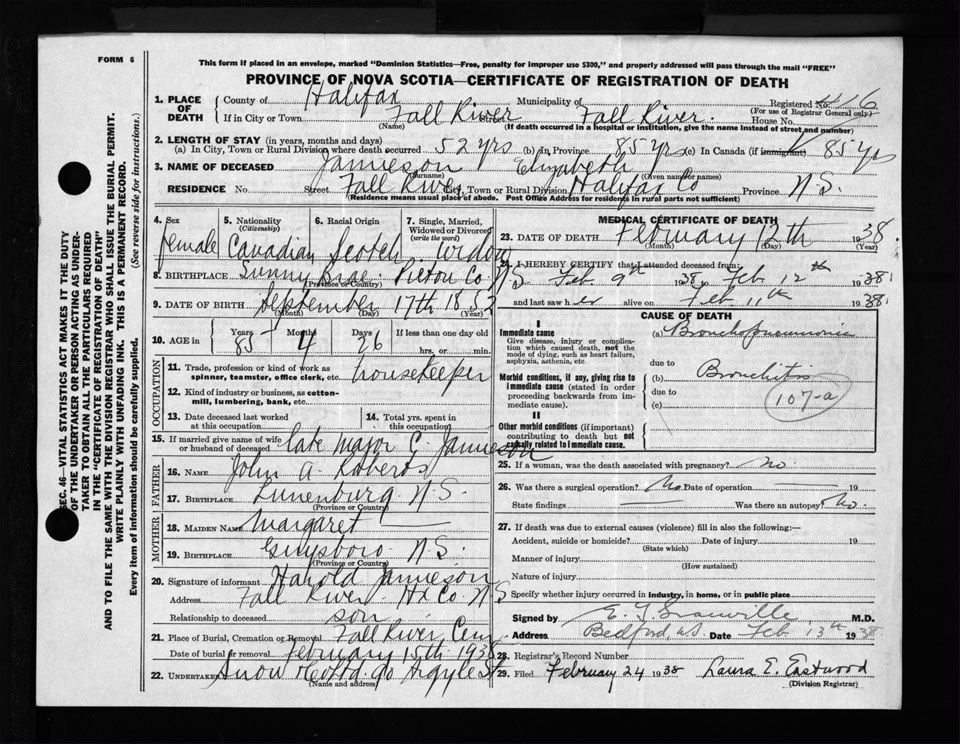 FORM 6
This form if placed in an envelope, marked "Dominion Statistics—Free, penalty for improper use $300," and properly addressed will pass through the mail "FREE"
PROVINCE OF NOVA SCOTIA—CERTIFICATE OF REGISTRATION OF DEATH
1. PLACE OF DEATH County of Halifax Municipality of Registered No.
(For use of Registrar General only)
If in City or Town Fall River Street Fall River. House No.
(Name) (If death occurred in a hospital or institution, give the name instead of street and number)
2. LENGTH OF STAY (in years, months and days)
(a) In City, Town or Rural Division where death occurred 52 yrs (b) In Province 85 yrs (c) In Canada (if immigrant) 85 yrs
3. NAME OF DECEASED Jamieson Elizabeth
(Surname) (Given name or names)
RESIDENCE No. Street Fall River City, Town or Rural Division Halifax Co Province N.S.
(Residence means usual place of abode. Post Office Address for residents in rural parts not sufficient)
4. Sex 5. Nationality (Citizenship) 6. Racial Origin 7. Single, Married, Widowed or Divorced (write the word)
female Canadian Scotch. Widow
8. BIRTHPLACE Sunny Brae. Pictou Co. N.S.
(Province or Country)
9. DATE OF BIRTH September 17th 1852
(Month) (Day) (Year)
10. AGE in Years Months Days If less than one day old
85 4 26 hrs. or min.
OCCUPATION
11. Trade, profession or kind of work as spinner, teamster, office clerk, etc. housekeeper
12. Kind of industry or business, as cotton-mill, lumbering, bank, etc.
13. Date deceased last worked at this occupation 14. Total yrs. spent in this occupation
15. If married give name of wife or husband of deceased late Major C. Jamieson
FATHER
16. NAME John A.
17. BIRTHPLACE Lunenburg N.S.
(Province or Country)
MOTHER
18. MAIDEN NAME Margaret
19. BIRTHPLACE Guysboro. N.S.
(Province or Country)
20. Signature of informant Harold Jamieson
Address Fall River. Hx Co. N.S
Relationship to deceased son
21. Place of Burial, Cremation or Removal Fall River Cem
Date of burial or removal February 15th 1938
22. UNDERTAKER Snow Argyle St
(Name and address)
MEDICAL CERTIFICATE OF DEATH
23. DATE OF DEATH February 12th 1938.
(Month) (Day) (Year)
24. I HEREBY CERTIFY that I attended deceased from:
Feb. 9th 1938 to Feb 12th 1938
and last saw her alive on Feb 11th 1938
CAUSE OF DEATH
I
Immediate cause (a) Bronchopneumonia
Give disease, injury or complication which caused death, not the mode of dying, such as heart failure, asphyxia, asthenia, etc
due to
Morbid conditions, if any, giving rise to immediate cause (stated in order proceeding backwards from immediate cause). (b) Bronchitis
due to
(c)
107-a
II
Other morbid conditions (if important) contributing to death but not causally related to immediate cause.
25. If a woman, was the death associated with pregnancy? No.
26. Was there a surgical operation? No Date of operation 19
State findings Was there an autopsy? No.
27. If death was due to external causes (violence) fill in also the following:—
Accident, suicide or homicide? Date of injury 19
(State which)
Manner of injury
(How sustained)
Nature of injury
Specify whether injury occurred in industry, in home, or in public place
Signed by M.D.
Address Bedford, N.S. Date Feb 13th 1938
28. Registrar's Record Number
29. Filed February 24 1938 Laura E. Eastwood
(Division Registrar)
SEC. 46—VITAL STATISTICS ACT MAKES IT THE DUTY
OF THE UNDERTAKER OR PERSON ACTING AS UNDER-
TAKER TO OBTAIN ALL THE PARTICULARS REQUIRED
IN THE "CERTIFICATE OF REGISTRATION OF DEATH"
AND TO FILE THE SAME WITH THE DIVISION REGISTRAR WHO SHALL ISSUE THE BURIAL PERMIT.
WRITE PLAINLY WITH UNFADING INK. THIS IS A PERMANENT RECORD.
Every item of information should be carefully supplied. (See reverse side for instructions.)